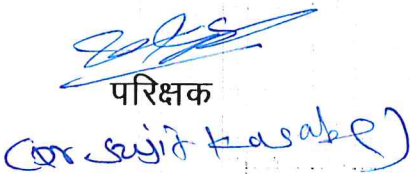 परिक्षक
(Dr Sujit Kasabe)